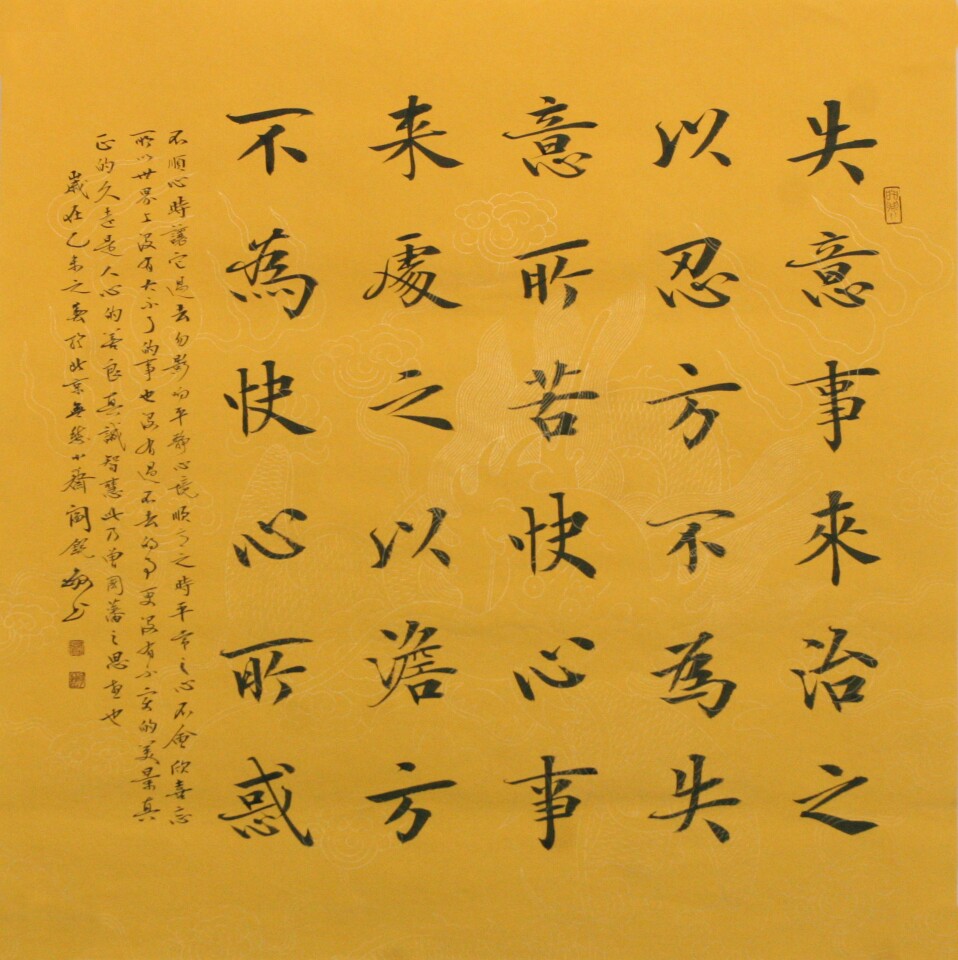 失意事來治之
以忍方不為失
意所苦快心事
来處之以澹方
不為快心所惑
不順心時讓它過去勿影响平靜心境順心之時平常之心不會欣喜忘
所以世界上沒有大不了的事也沒有過不去的事更沒有不变的美景真
正的久遠是人心的善良真誠智慧此乃曾國藩之思想也
歲在乙未之春於北京書